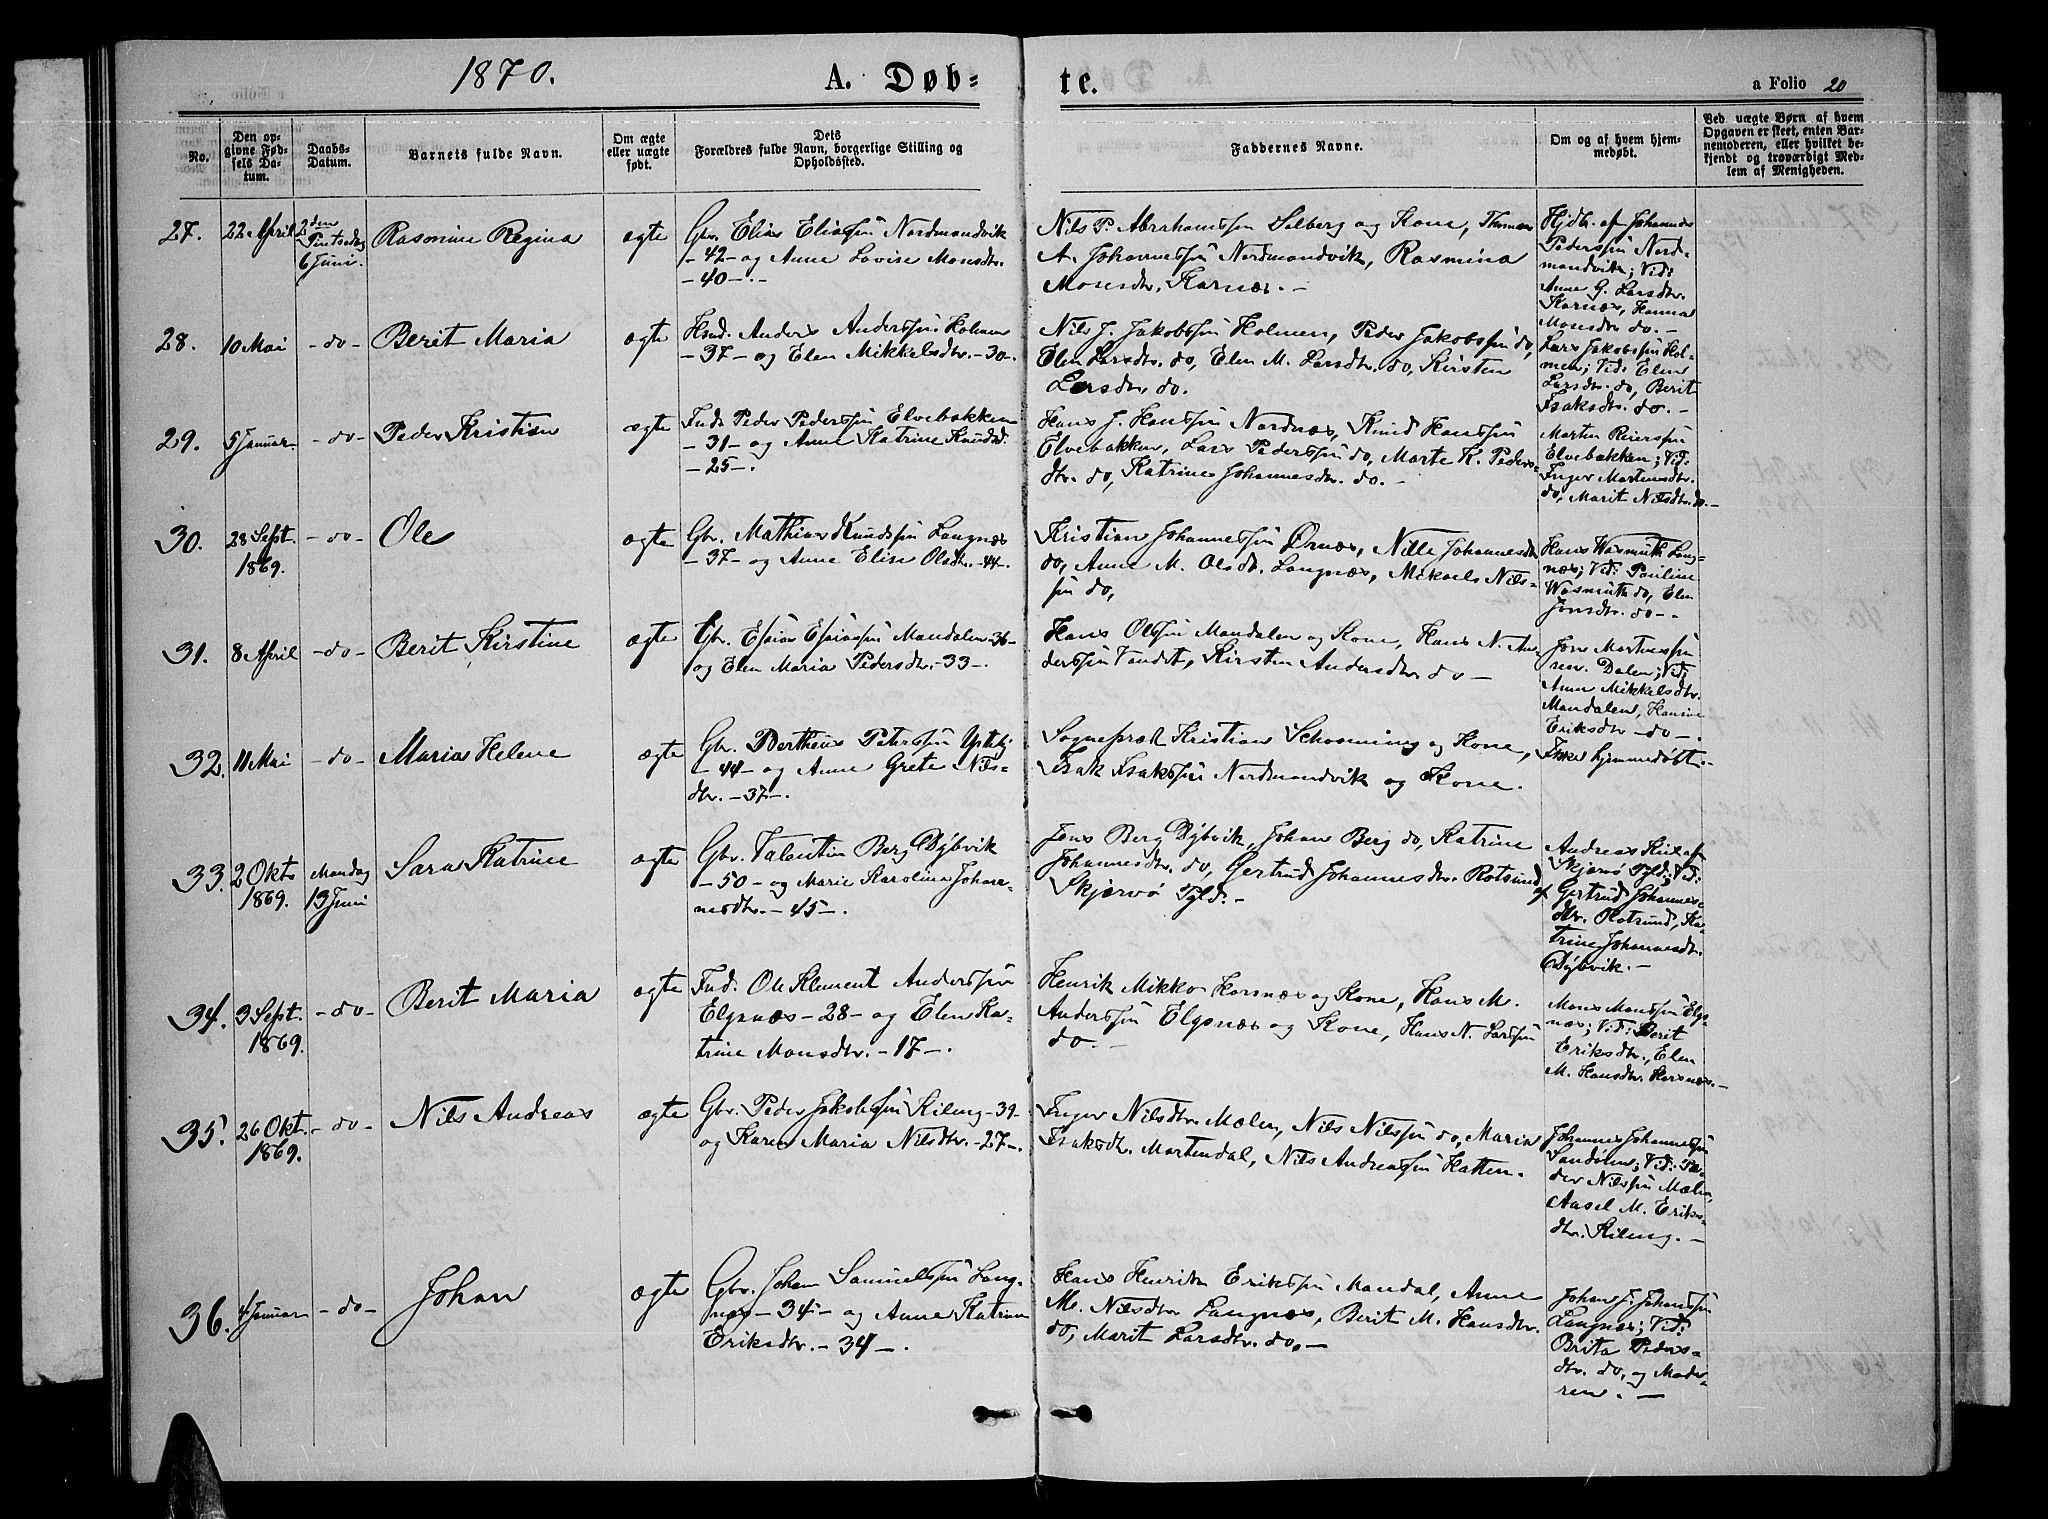 1870.
A. Døb=
te.
a Folio 20
No.
Den op=
givne Fød=
sels Da=
tum.
Daabs=
Datum.
Barnets fulde Navn.
Om ægte
eller uægte
født.
Dets
Forældres fulde Navn, borgerlige Stilling og
Opholdssted.
Faddernes Navne.
Om og af hvem hjem=
medøbt.
Ved uægte Børn af hvem
Opgaven er skeet, enten Bar=
nemoderen, eller hvilket be=
kjendt og troværdigt Med=
lem af Menigheden.
27.
22 April
2den
Pintsedag
6 Juni.
Rasmine Regina
ægte
Gbr. Elias Eliassen Nordmandvik
- 42 - og Anne Lovise Monsdtr.
- 40 - . -
Nils P. Abrahamssen Solberg og Kone, Thomas
A. Johannessen Nordmandvik, Rasmina
Monsdtr. Karnæs. -
Hjdb. af Johannes
Pederssen Nord-
mandvik; Vid:
Anne G. Larsdtr.
Karnæs, Hanna
Monsdtr do. -
28.
10 Mai
- do -
Berit Maria
ægte
Hsmd. Anders Anderssen Holmen
- 37 - og Elen Mikkelsdtr. - 30 -.
Nils J. Jakobssen Holmen, Peder Jakobssen do,
Elen Larsdtr. do, Elen M. Larsdtr. do, Kirsten
Larsdtr. do.
Lars Jakobssen Hol-
men; Vid: Elen
Larsdtr. do, Berit
Isaksdtr. do. -
29.
5 Januar.
- do -
Peder Kristian
ægte
Ind. Peder Pederssen Elvebakken
- 31 - og Anne Katrine Knudsd.
- 25 - .
Hans J. Hanssen Nordnæs, Knud Hanssen
Elvebakken, Lars Pederssen do, Marte K. Peders-
dtr. do, Katrine Johannesdtr. do. -
Morten Reierssen
Elvebakken; Vid:
Inger Mortensdtr.
do, Marit Nilsdtr. do. -
30.
28 Sept.
1869.
- do -
Ole
ægte
Gbr. Mathias Knudssen Langnæs
- 37 - og Anne Elise Olsdtr. - 44 - .
Kristian Johannessen Ørnæs, Nille Johannesdtr
do, Anne M. Olsdtr. Langnæs, Mikaels Nils-
sen do,
Hans Wasmuth Lang-
næs; Vid: Pauline
Wasmuth do, Elen
Jonsdtr. do - .
31.
8 April
- do -
Berit Kirstine
ægte
Gbr. Esaias Esaiassen Mandalen - 36 -
og Elen Maria Pedersdtr. - 33 - .
Hans Olssen Mandalen og Kone, Hans N. An-
derssen, Kirsten Andersdtr. do -
Jon Mortenssen
Dalen; Vid:
Anne Mikkelsdtr.
Mandalen, Hansine
Eriksdtr - do - .
32.
11 Mai
- do -
Maria Helene
ægte
Gbr. Bertheus Peterssen
- 44 - og Anne Grete Nils-
dtr. - 37 - .
Sognepræst Kristian Schonning og Kone,
Isak Isakssen Nordmandvik og Kone.
Ikke hjemmedøbt. -
33.
2 Okt
1869.
Mandag
13 Juni
Sara Katrine
ægte
Gbr. Valentin Berg Dybvik
- 50 - og Marie Karolina Johan-
nesdtr. - 45 - .
Jens Berg Dybvik, Johan Berg do, Katrine
Johannesdtr. do, Gertrud Johannesdtr. Rotsund af
Skjærvø Pgld. -
Andreas Kiil af
Skjærvø Pgld; Vid:
Gertrud Johannes-
dtr. Rotsund, Ka-
trine Johannesdtr.
Dybvik. -
34.
3 Sept.
1869.
- do -
Berit Maria
ægte
Ind. Ole Klement Anderssen
Elgsnæs - 28 - og Elen Ka-
trine Monsdtr. - 17 - .
Henrik Mikko Horsnæs og Kone, Hans M.
Anderssen Elgsnæs og Kone, Hans N. Larssen
do. -
Mons Monssen Elgs-
næs; Vid: Berit
Eriksdtr., Elen
M. Hansdtr. Horsnæs. -
35.
26 Okt.
1869.
- do -
Nils Andreas
ægte
Gbr. Peder Jakobssen Kileng - 39 -
og Karen Maria Nilsdtr. - 27 - .
Inger Nilsdtr. Mælen, Nils Nilssen do, Maria
Isaksdtr. Mortendal, Nils Andreassen Hatten. -
Johannes Johannessen
Sandøren; Vid: Pe-
der Nilssen Mælen,
Aasel M. Eriks-
dtr. Kileng. -
36.
4 Januar
- do -
Johan
ægte
Gbr. Johan Samuelssen Lang-
næs - 34 - og Anne Katrine
Eriksdtr. - 34 - .
Hans Henrik Erikssen Mandal, Anne
M. Nilsdtr Langnæs, Berit M. Hansdtr.
do, Marit Larsdtr. do. -
Johan J. Johanssen
Langnæs; Vid:
Brita Peders-
dtr. do. og Mode-
ren. -